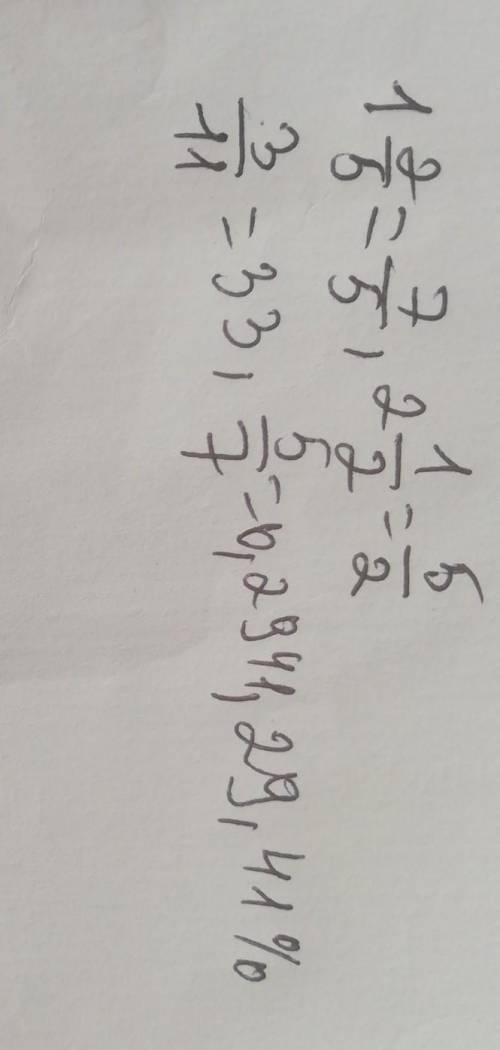 1 2/5 = 7/5, 2 1/2 = 5/2
3/11 = 33, 5/7 = 0,2941, 29,41%